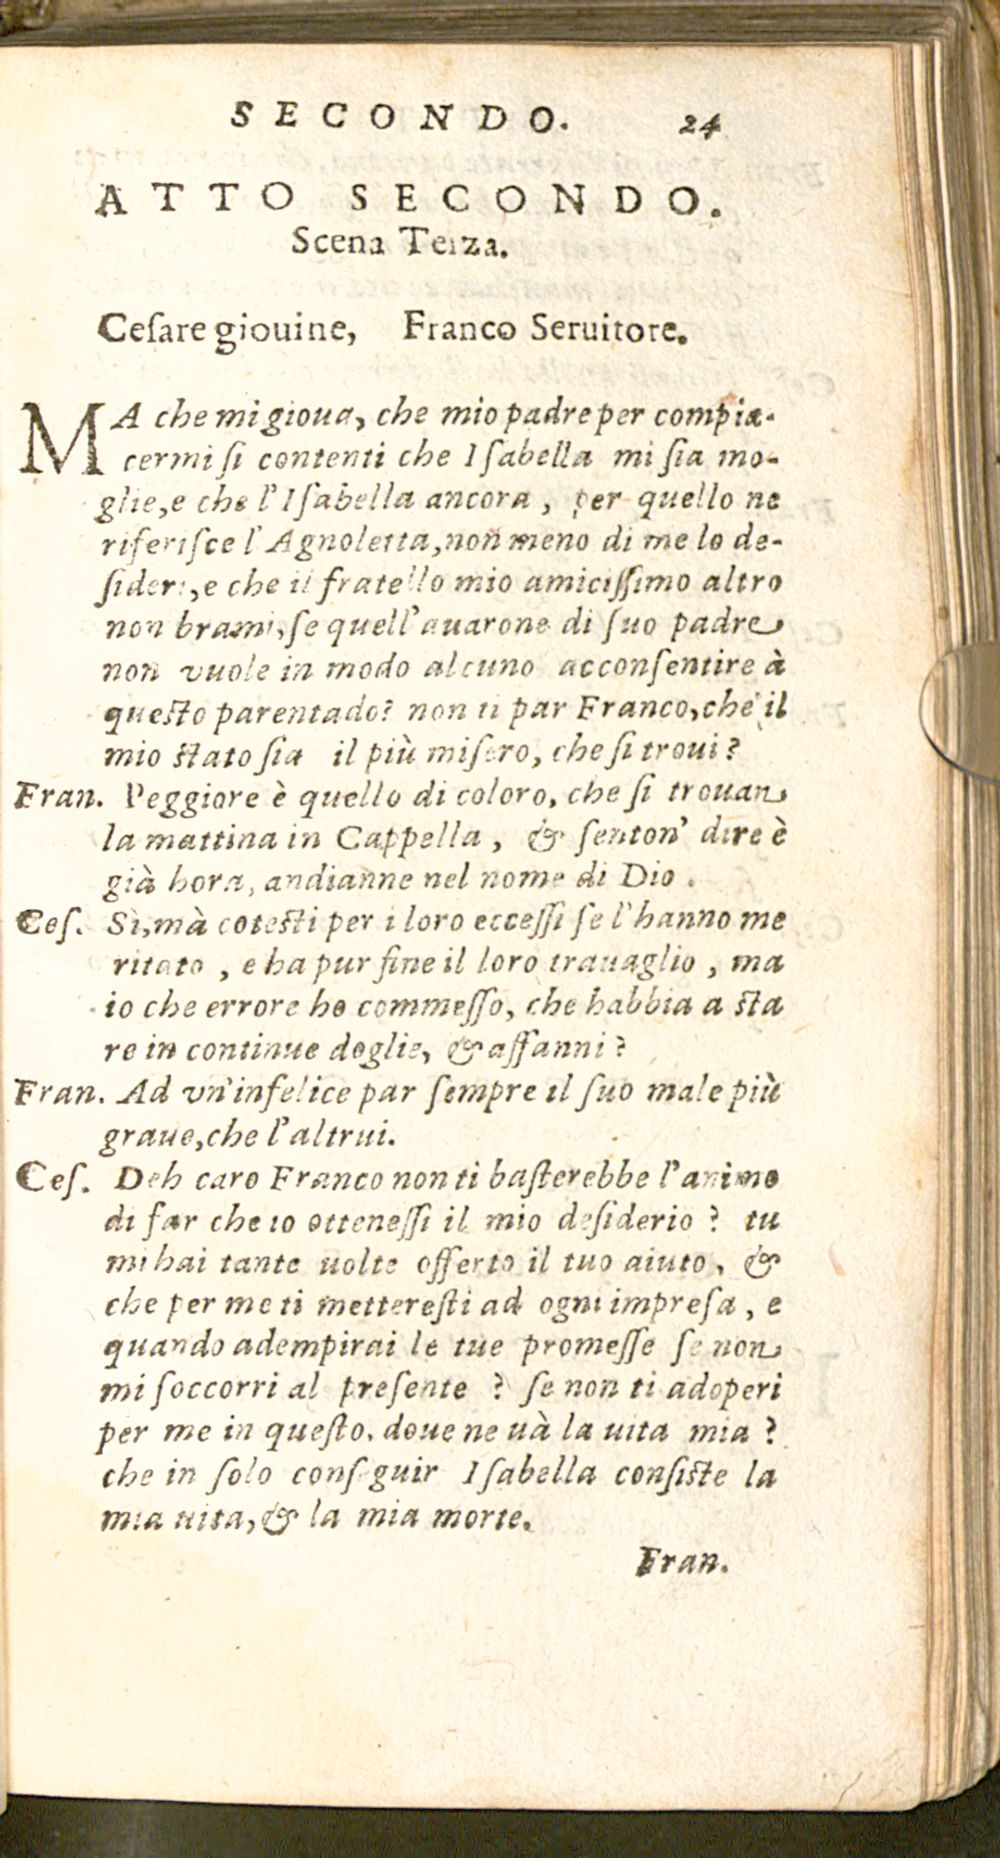 SECONDO. 24
ATTO SECONDO.
Scena Terza.
Ceſare giouine, Franco Seruitore.
MA che mi gioua, che mio padre per compia-
cermi ſi contenti che Iſabella mi ſia mo-
glie, e che l'Iſabella ancora, per quello ne
riferiſce l'Agnoletta, non meno di me lo de-
ſideri, e che il fratello mio amiciſſimo altro
non brami, ſe quell'auarone di ſuo padre
non vuole in modo alcuno acconſentire à
queſto parentado? non ti par Franco, che il
mio ſtato ſia il più miſero, che ſi troui?
Fran. Peggiore è quello di coloro, che ſi trouan
la mattina in Cappella, & ſenton' dire è
già hora, andianne nel nome di Dio.
Ceſ. Sì, mà coteſti per i loro ecceſſi ſe l'hanno me
ritato, e ha pur fine il loro trauaglio, ma
io che errore ho commeſſo, che habbia a ſta
re in continue doglie, & affanni?
Fran. Ad vn'infelice par ſempre il ſuo male più
graue, che l'altrui.
Ceſ. Deh caro Franco non ti baſterebbe l'animo
di far che io otteneſſi il mio deſiderio? tu
mi hai tante uolte offerto il tuo aiuto, &
che per me ti metereſti ad ogni impreſa, e
quando adempirai le tue promeſſe ſe non
mi ſoccorri al preſente? ſe non ti adoperi
per me in queſto, doue ne uà la uita mia?
che in ſolo conſeguir Iſabella conſiſte la
mia uita, & la mia morte.
Fran.